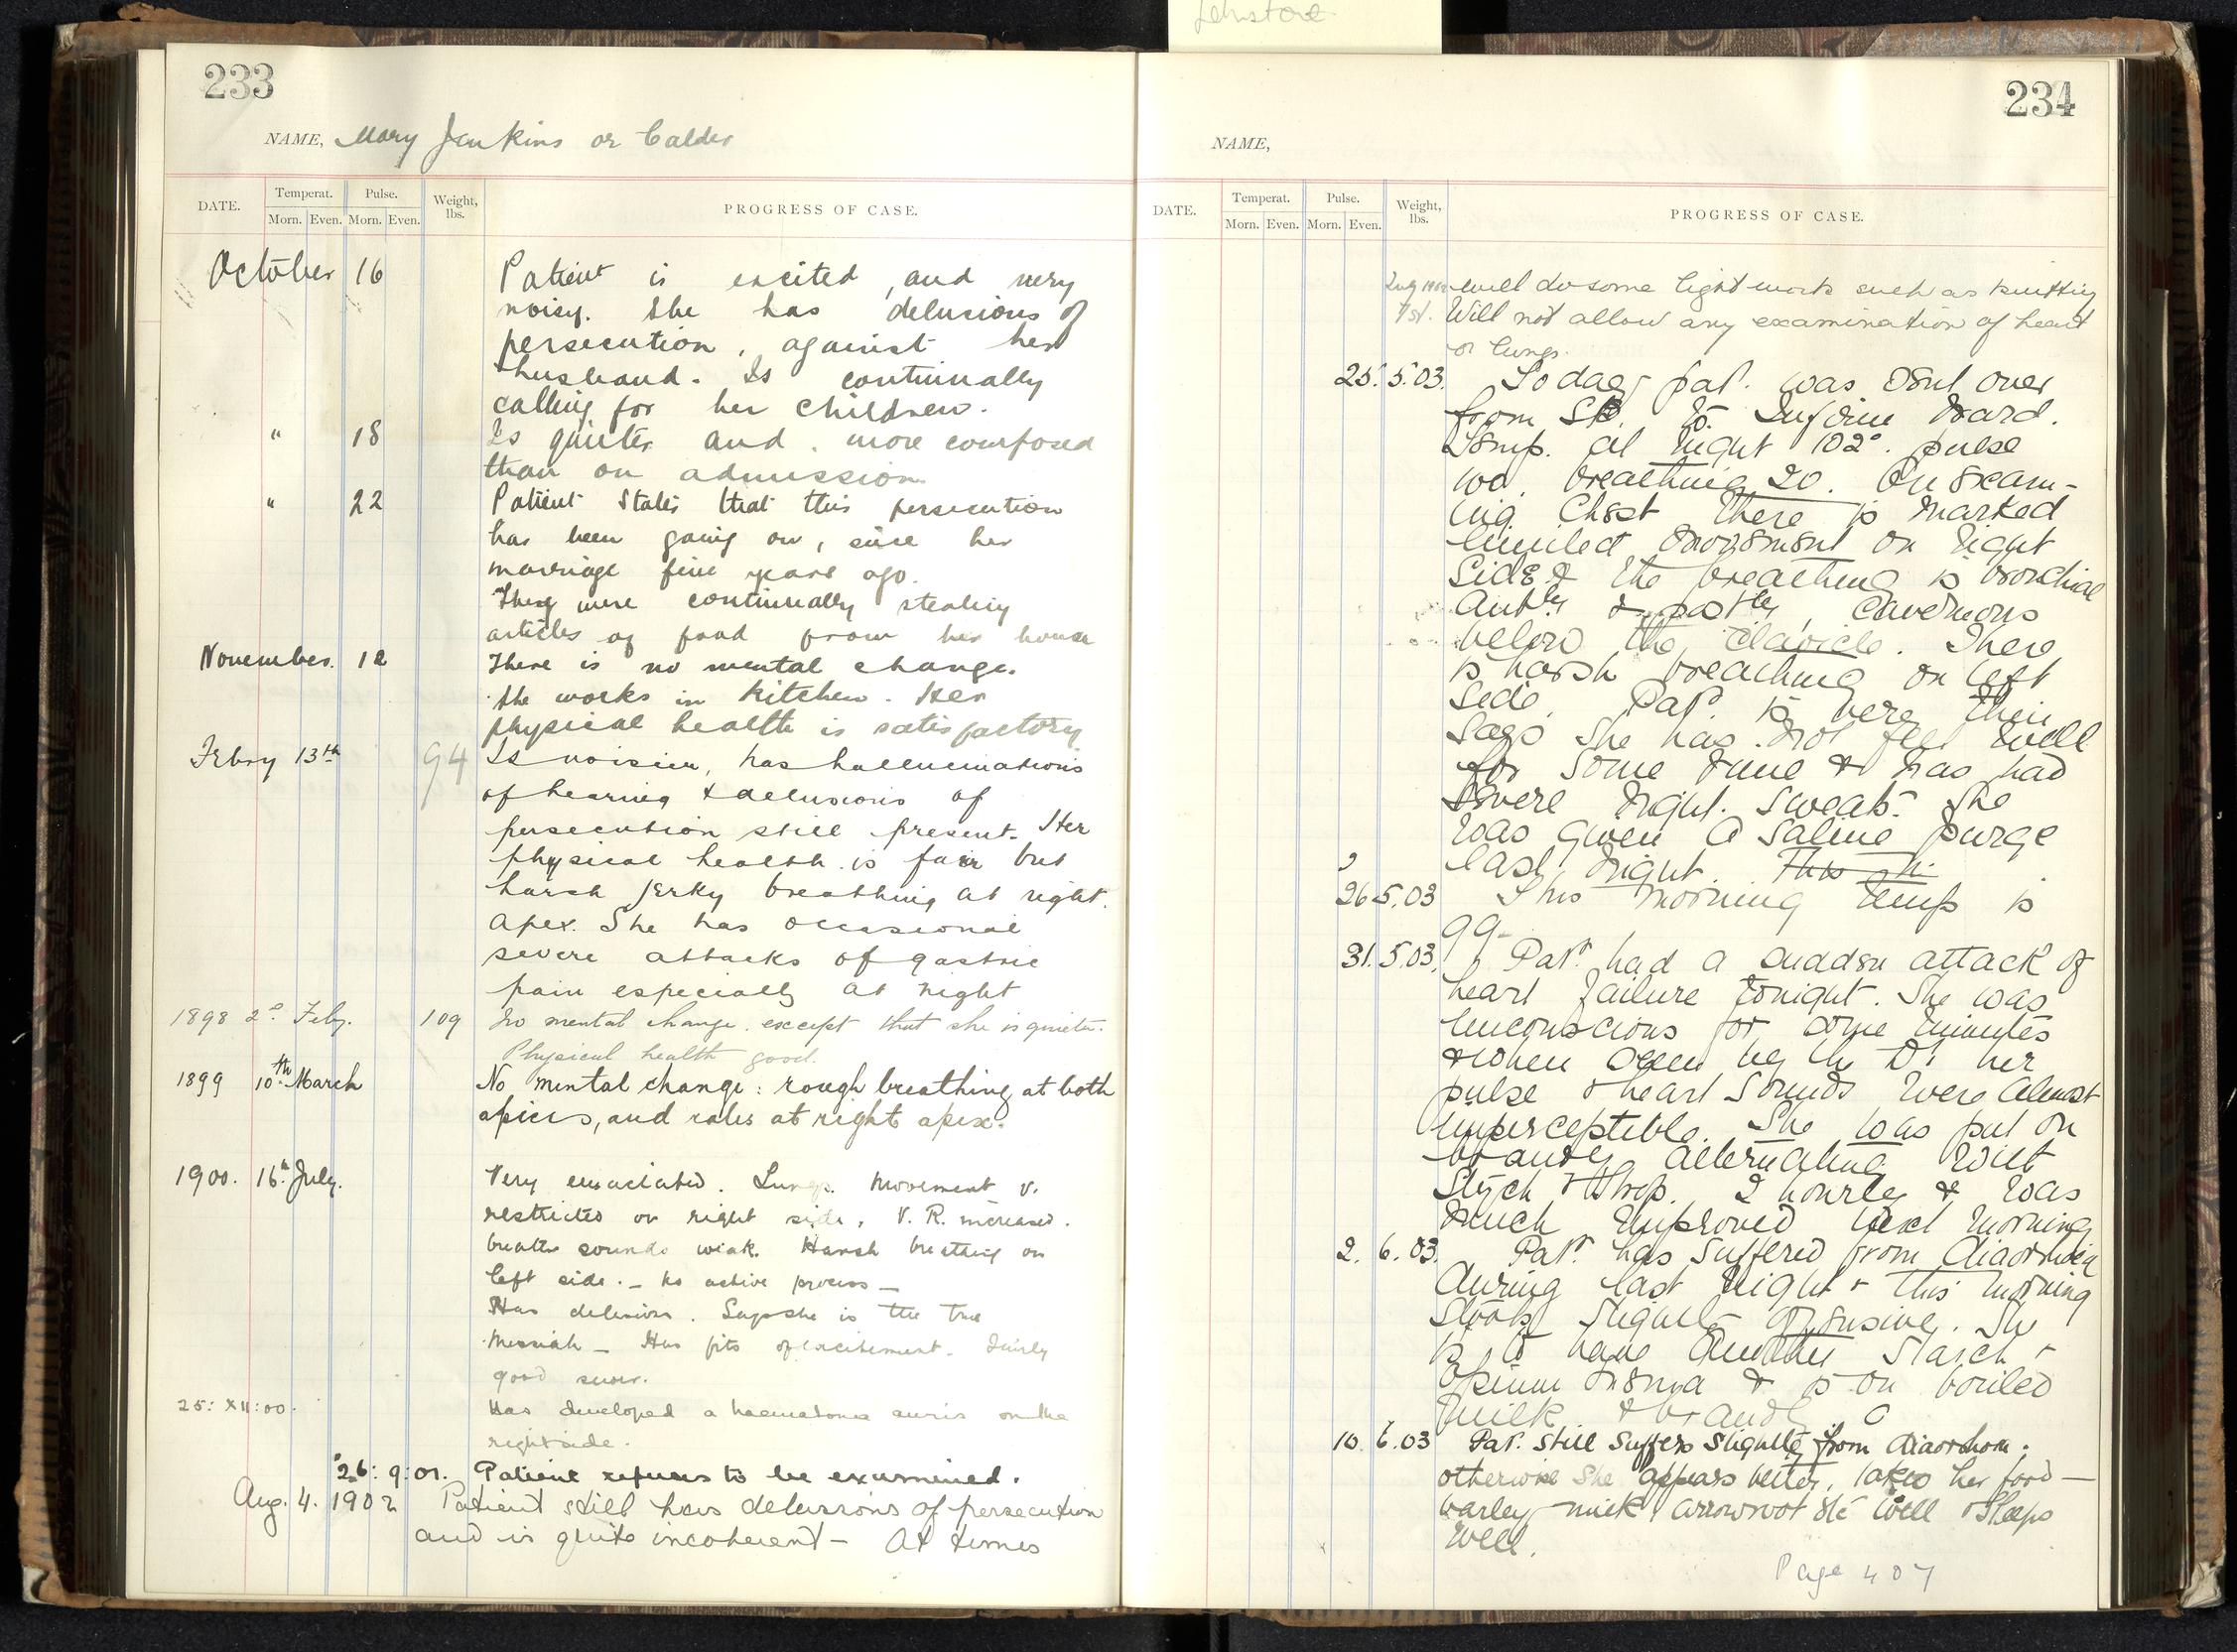 233
NAME, Mary Jenkins or Calder
DATE. Temperat. Pulse. Weight, lbs. PROGRESS OF CASE.
Morn. Even. Morn. Even.
October 16 Patient is excited, and very
noisy. She has delusions of
persecution, against her
husband. Is continually
calling for her children.
" 18 Is quieter and more composed
than on admission.
" 22 Patient States that this persecution
has been going on, since her
marriage five years ago.
They were continually stealing
articles of food from her house
November. 12 There is no mental change.
She works in kitchen. Her
physical health is satisfactory
Febry 13th 94 Is noisier, has hallucinations
of hearing & delusions of
persecution still present. Her
physical health is fair but
harsh jerky breathing at right
apex. She has occasional
severe attacks of gastric
pain especially at night
1898 2d Feby. 109 No mental change except that she is quieter.
Physical health good.
1899 10th March No mental change: rough breathing at both
apices, and rales at right apex.
1900. 16th July. Very emaciated. Lungs. Movement v.
restricted on right side, V. R. increased.
breath sounds weak. Harsh breathing on
left side. – No active process –
Has delusions. Says she is the true
Messiah – Has fits of excitement. Fairly
good sewer.
25: XII: 00. Has developed a haematoma auris on the
right side.
26: 9: 01. Patient refuses to be examined.
Aug. 4. 1902 Patient still has delusions of persecution
and is quite incoherent – At times
234
NAME,
DATE. Temperat. Pulse. Weight, lbs. PROGRESS OF CASE.
Morn. Even. Morn. Even.
will do some light work such as knitting
Will not allow any examination of heart
or lungs.
25. 5. 03. Today pat. was sent over
from to Infirm Ward.
Temp. at night 102°. pulse
100. breathing 20. On exam-
ing Chest there is marked
limited movement on right
Side & the breathing is bronchial
antly & postly, cavernous
below the clavicle. There
is harsh breathing on left
side. Pat. is very thin
Says she has not felt well
for some time & has had
severe night. sweats. She
was given a saline purge
last night. This
26 5. 03 This morning temp is
99.
31. 5. 03. Pat. had a sudden attack of
heart failure tonight. She was
unconscious for some minutes
& when seen by the Dr her
pulse & heart sounds were almost
imperceptible. She was put on
brandy alternating with
Stych & Strop. 2 hourly & was
much improved next morning
2. 6. 03. Pat. has suffered from diarrhoea
during last night & this morning
Stools slightly offensive. She
is to have another Starch &
Opium enema & is on boiled
milk & brandy.
10. 6. 03 Pat. still suffers slightly from diarrhoea.
otherwise she appears better, takes her food —
barley milk arrowroot etc well & sleeps
well.
Page 407